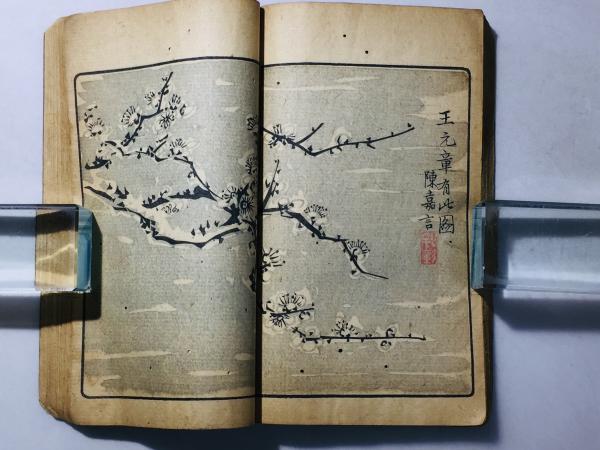 王元章有此圖
陳嘉言